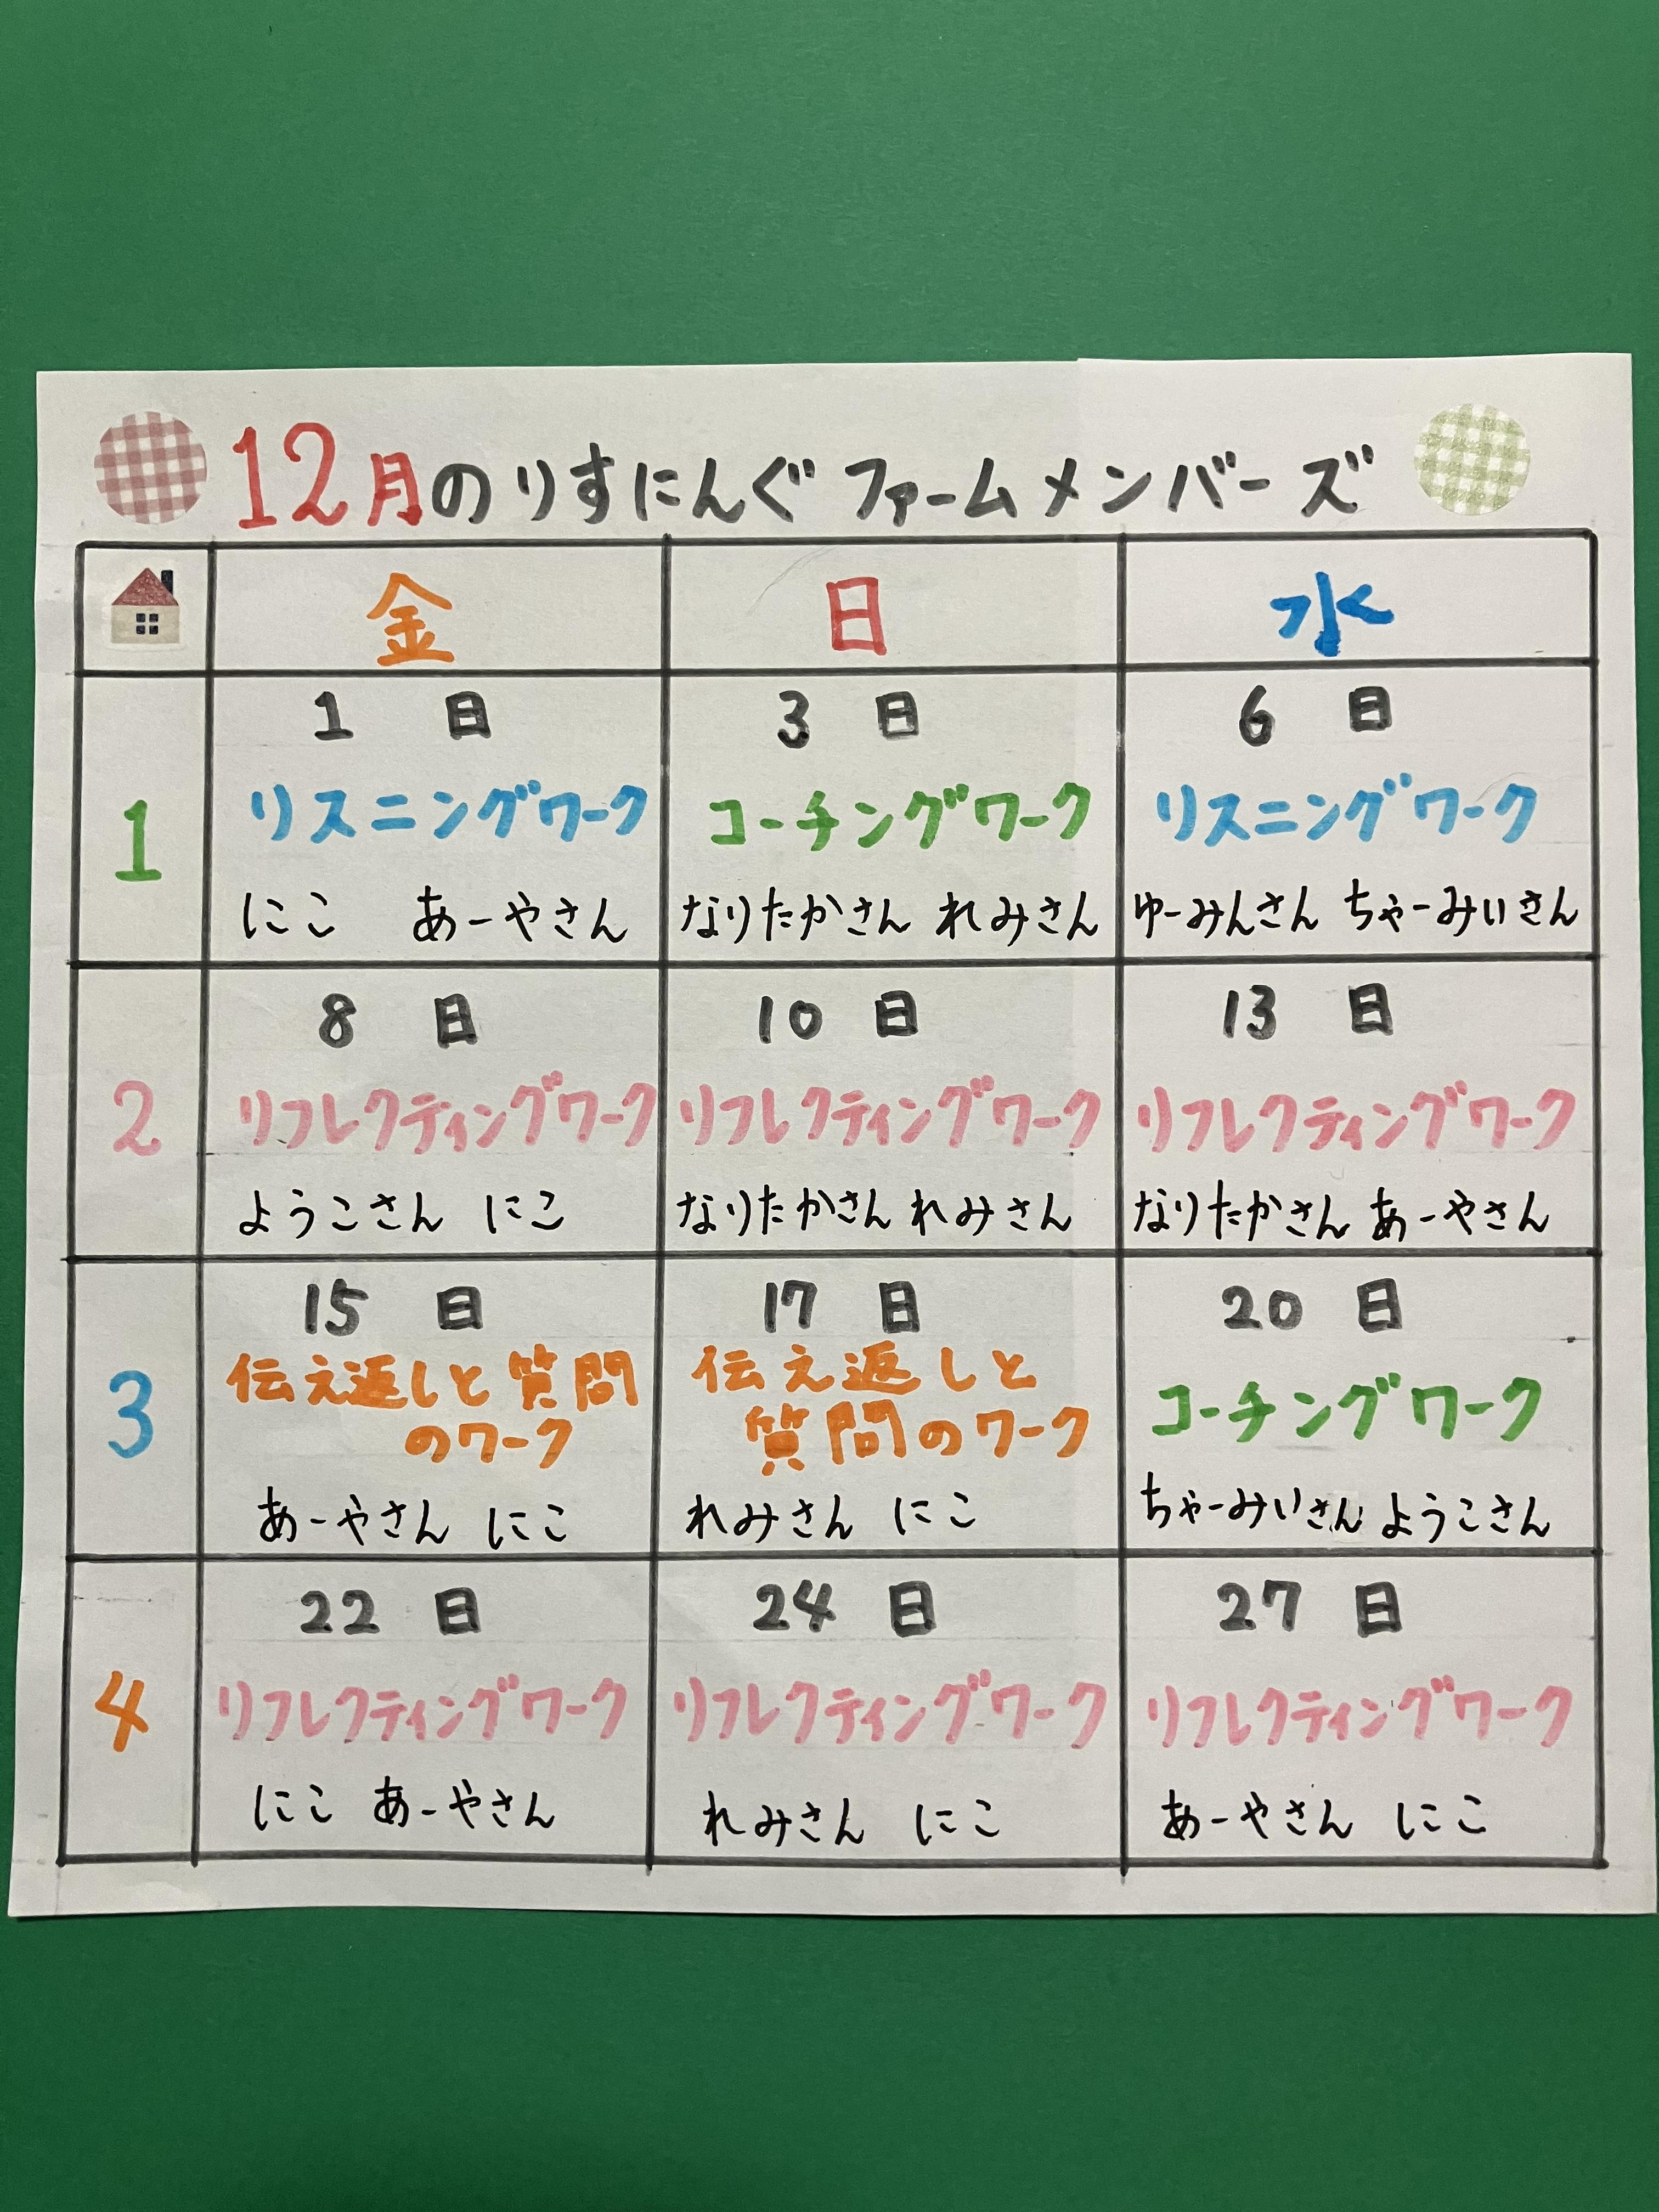 12月のりすにんぐファームメンバーズ
金 日 水
1
1日
リスニングワーク
にこ あーやさん
3日
コーチングワーク
なりたかさん れみさん
6日
リスニングワーク
ゆーみんさん ちゃーみぃさん
2
8日
リフレクティングワーク
ようこさん にこ
10日
リフレクティングワーク
なりたかさん れみさん
13日
リフレクティングワーク
なりたかさん あーやさん
3
15日
伝え返しと質問
のワーク
あーやさん にこ
17日
伝え返しと
質問のワーク
れみさん にこ
20日
コーチングワーク
ちゃーみぃさん ようこさん
4
22日
リフレクティングワーク
にこ あーやさん
24日
リフレクティングワーク
れみさん にこ
27日
リフレクティングワーク
あーやさん にこ